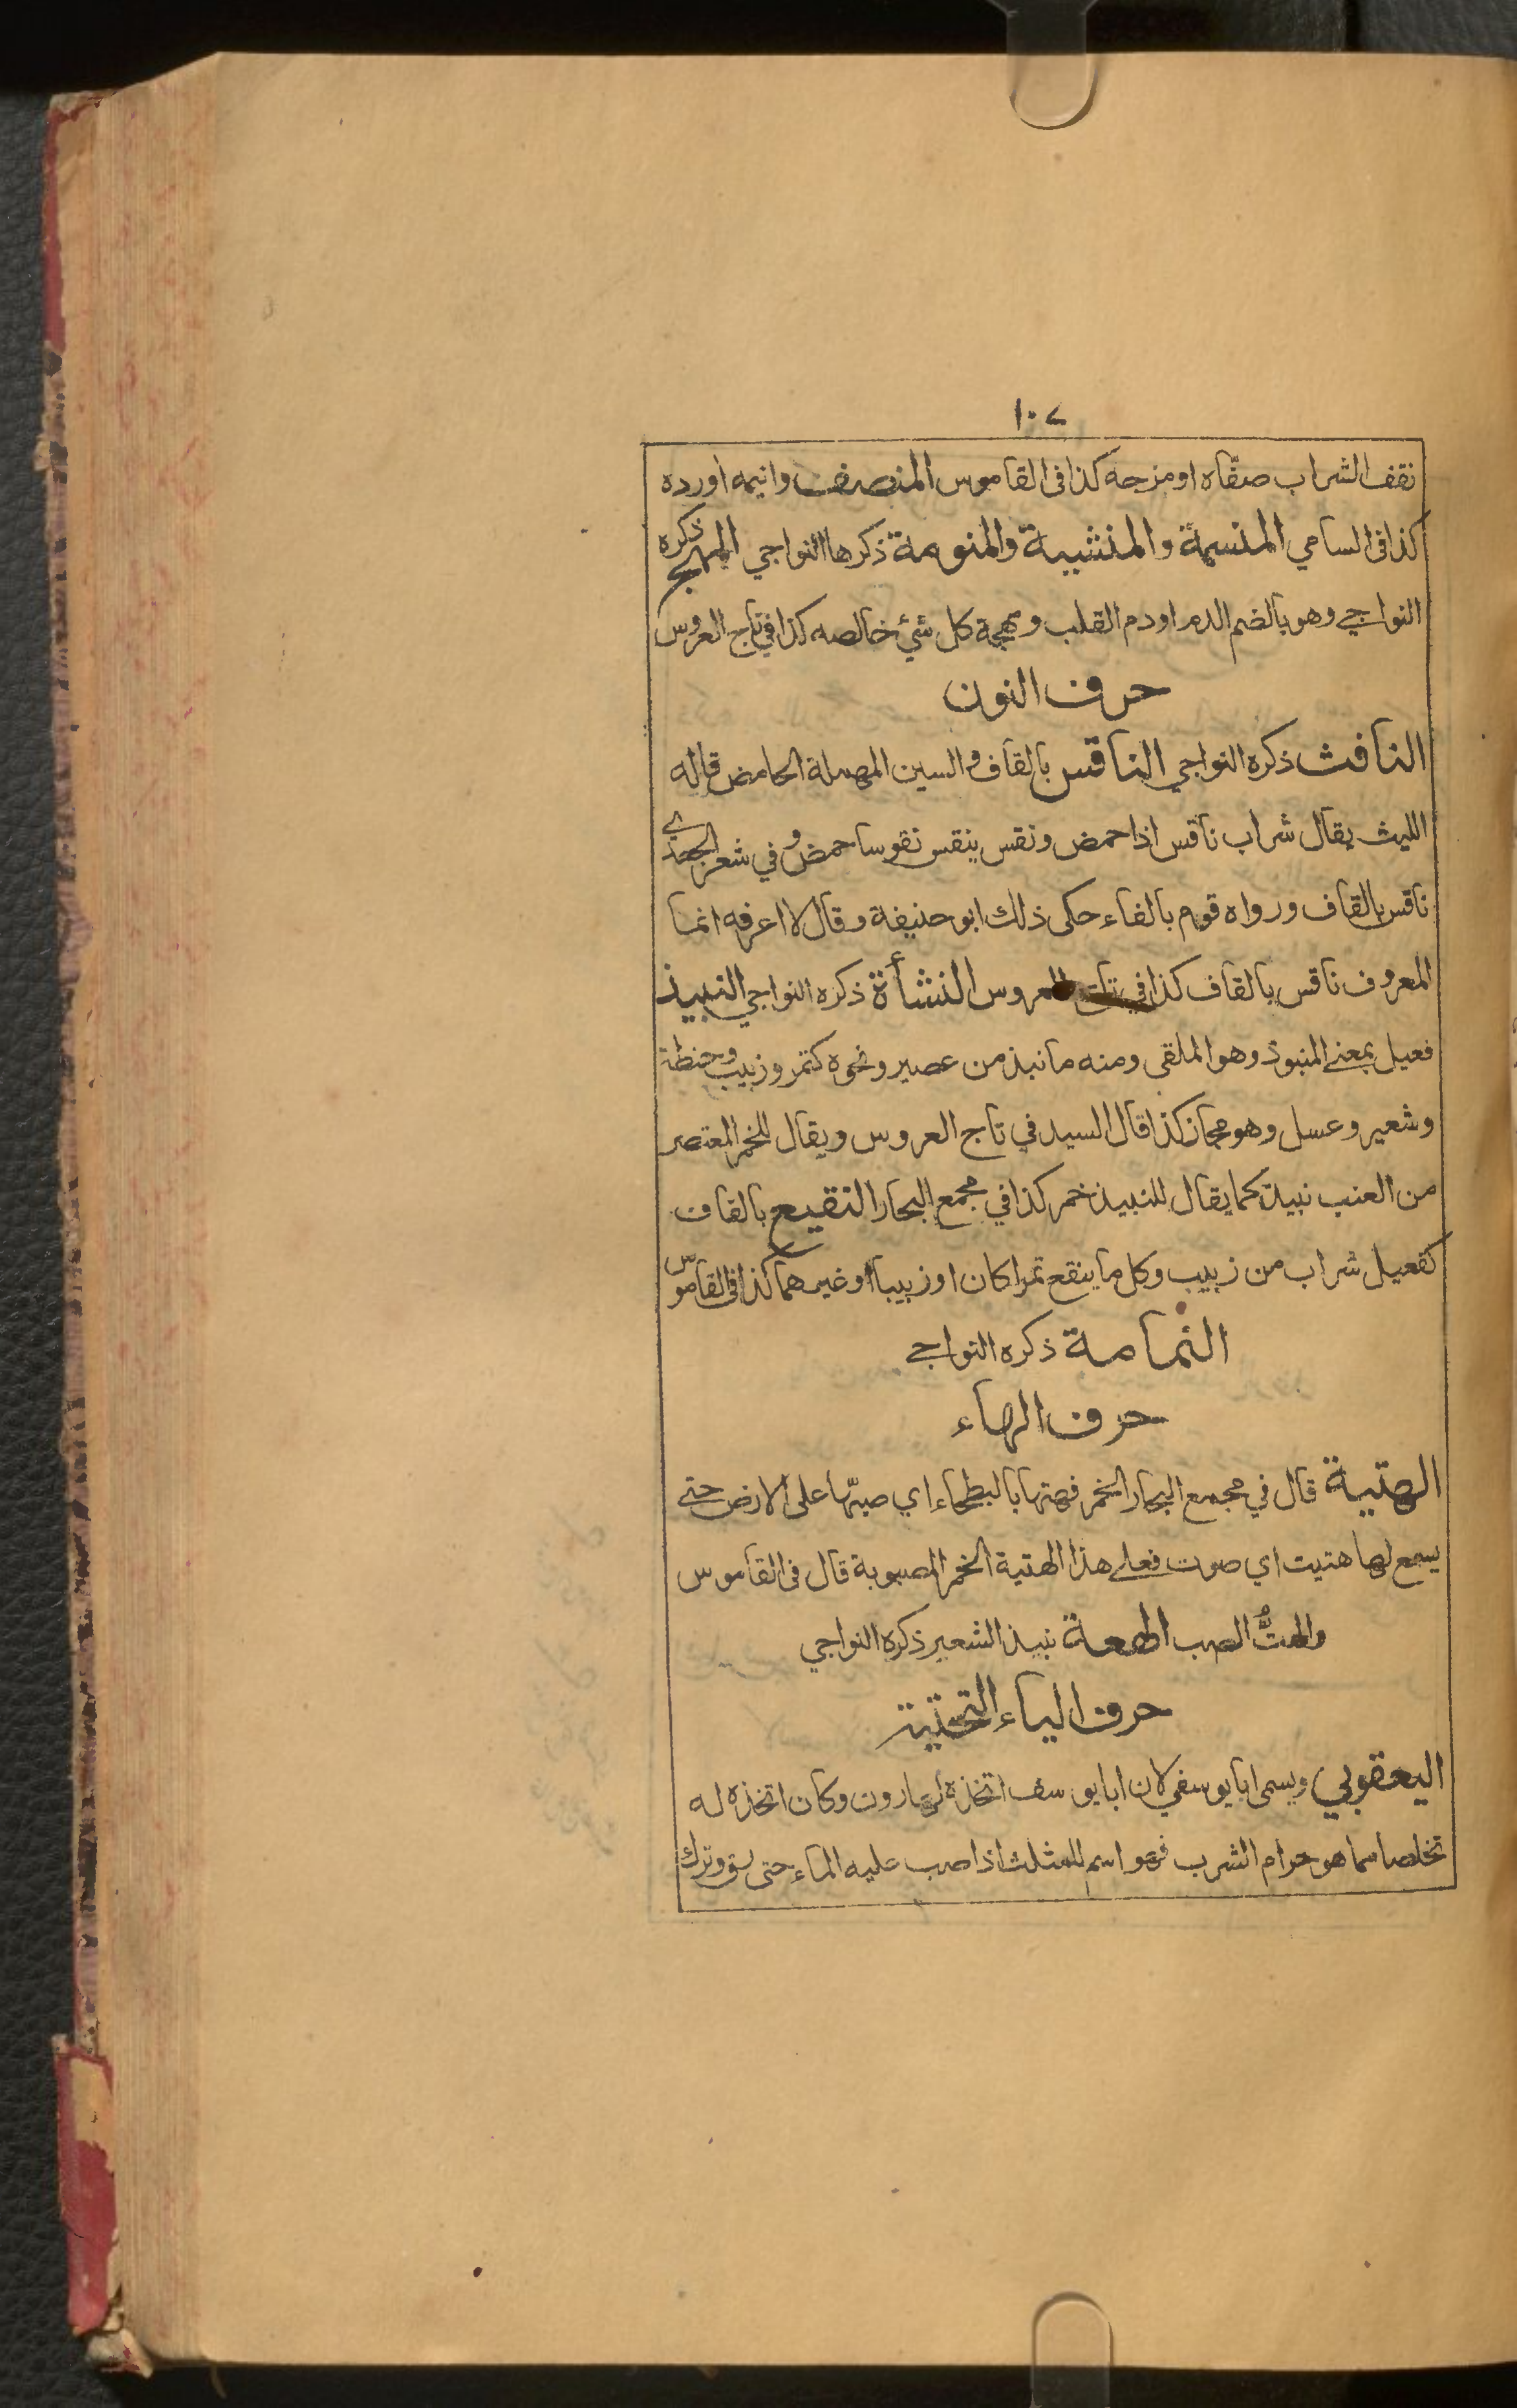 ١٠٧
نقف الشراب صفّاه او مزجه كذا فى القاموس المنصف وانيمه اورده
كذا فى السامي المنسمة والمنشبية والمنومة ذكرها النواجي المهج ذكره
النواجي وهو بالضم الدم او دم القلب ومهجة كل شئ خالصه كذا في تاج العروس
حرف النون
النافث ذكره النواجي الناقس بالقاف والسين المهملة الحامض قاله
الليث يقال شراب ناقس اذا حمض ونقس ينقس نقوسا حمض وفي شعر الجعدي
ناقس بالقاف ورواه قوم بالفاء حكى ذلك ابو حنيفة وقال لا اعرفه انما
المعروف ناقس بالقاف كذا في تاج العروس النشأة ذكره النواجي النبيذ
فعيل بمعنے المنبوذ وهو الملقى ومنه ما نبذ من عصير ونحوه كتمر وزبيب وحنطة
وشعير وعسل وهو مجاز كذا قال السيد في تاج العروس ويقال للخمر المعتصر
من العنب نبيذ كما يقال للنبيذ خمر كذا في مجمع البحار النقيع بالقاف
كفعيل شراب من زبيب وكل ما ينقع تمرا كان او زبيبا او غيرهما كذا فى القاموس
النمامة ذكره النواجے
حرف الهاء
الهتية قال في مجمع البحار الخمر فهتها بالبطحاء اي صبّها على الارض حتے
يسمع لها هتيت اي صوت فعلے هذا الهتية الخمر المصبوبة قال فى القاموس
والهتُّ الصب الهعة نبيذ الشعير ذكره النواجي
حرف الياء التحتية
اليعقوبي ويسمى ابا يوسفي لان ابا يوسف اتخذه لهارون وكان اتخذه له
تخلصا مما هو حرام الشرب فهو اسم للمثلث اذا صب عليه الماء حتى يرق وترك